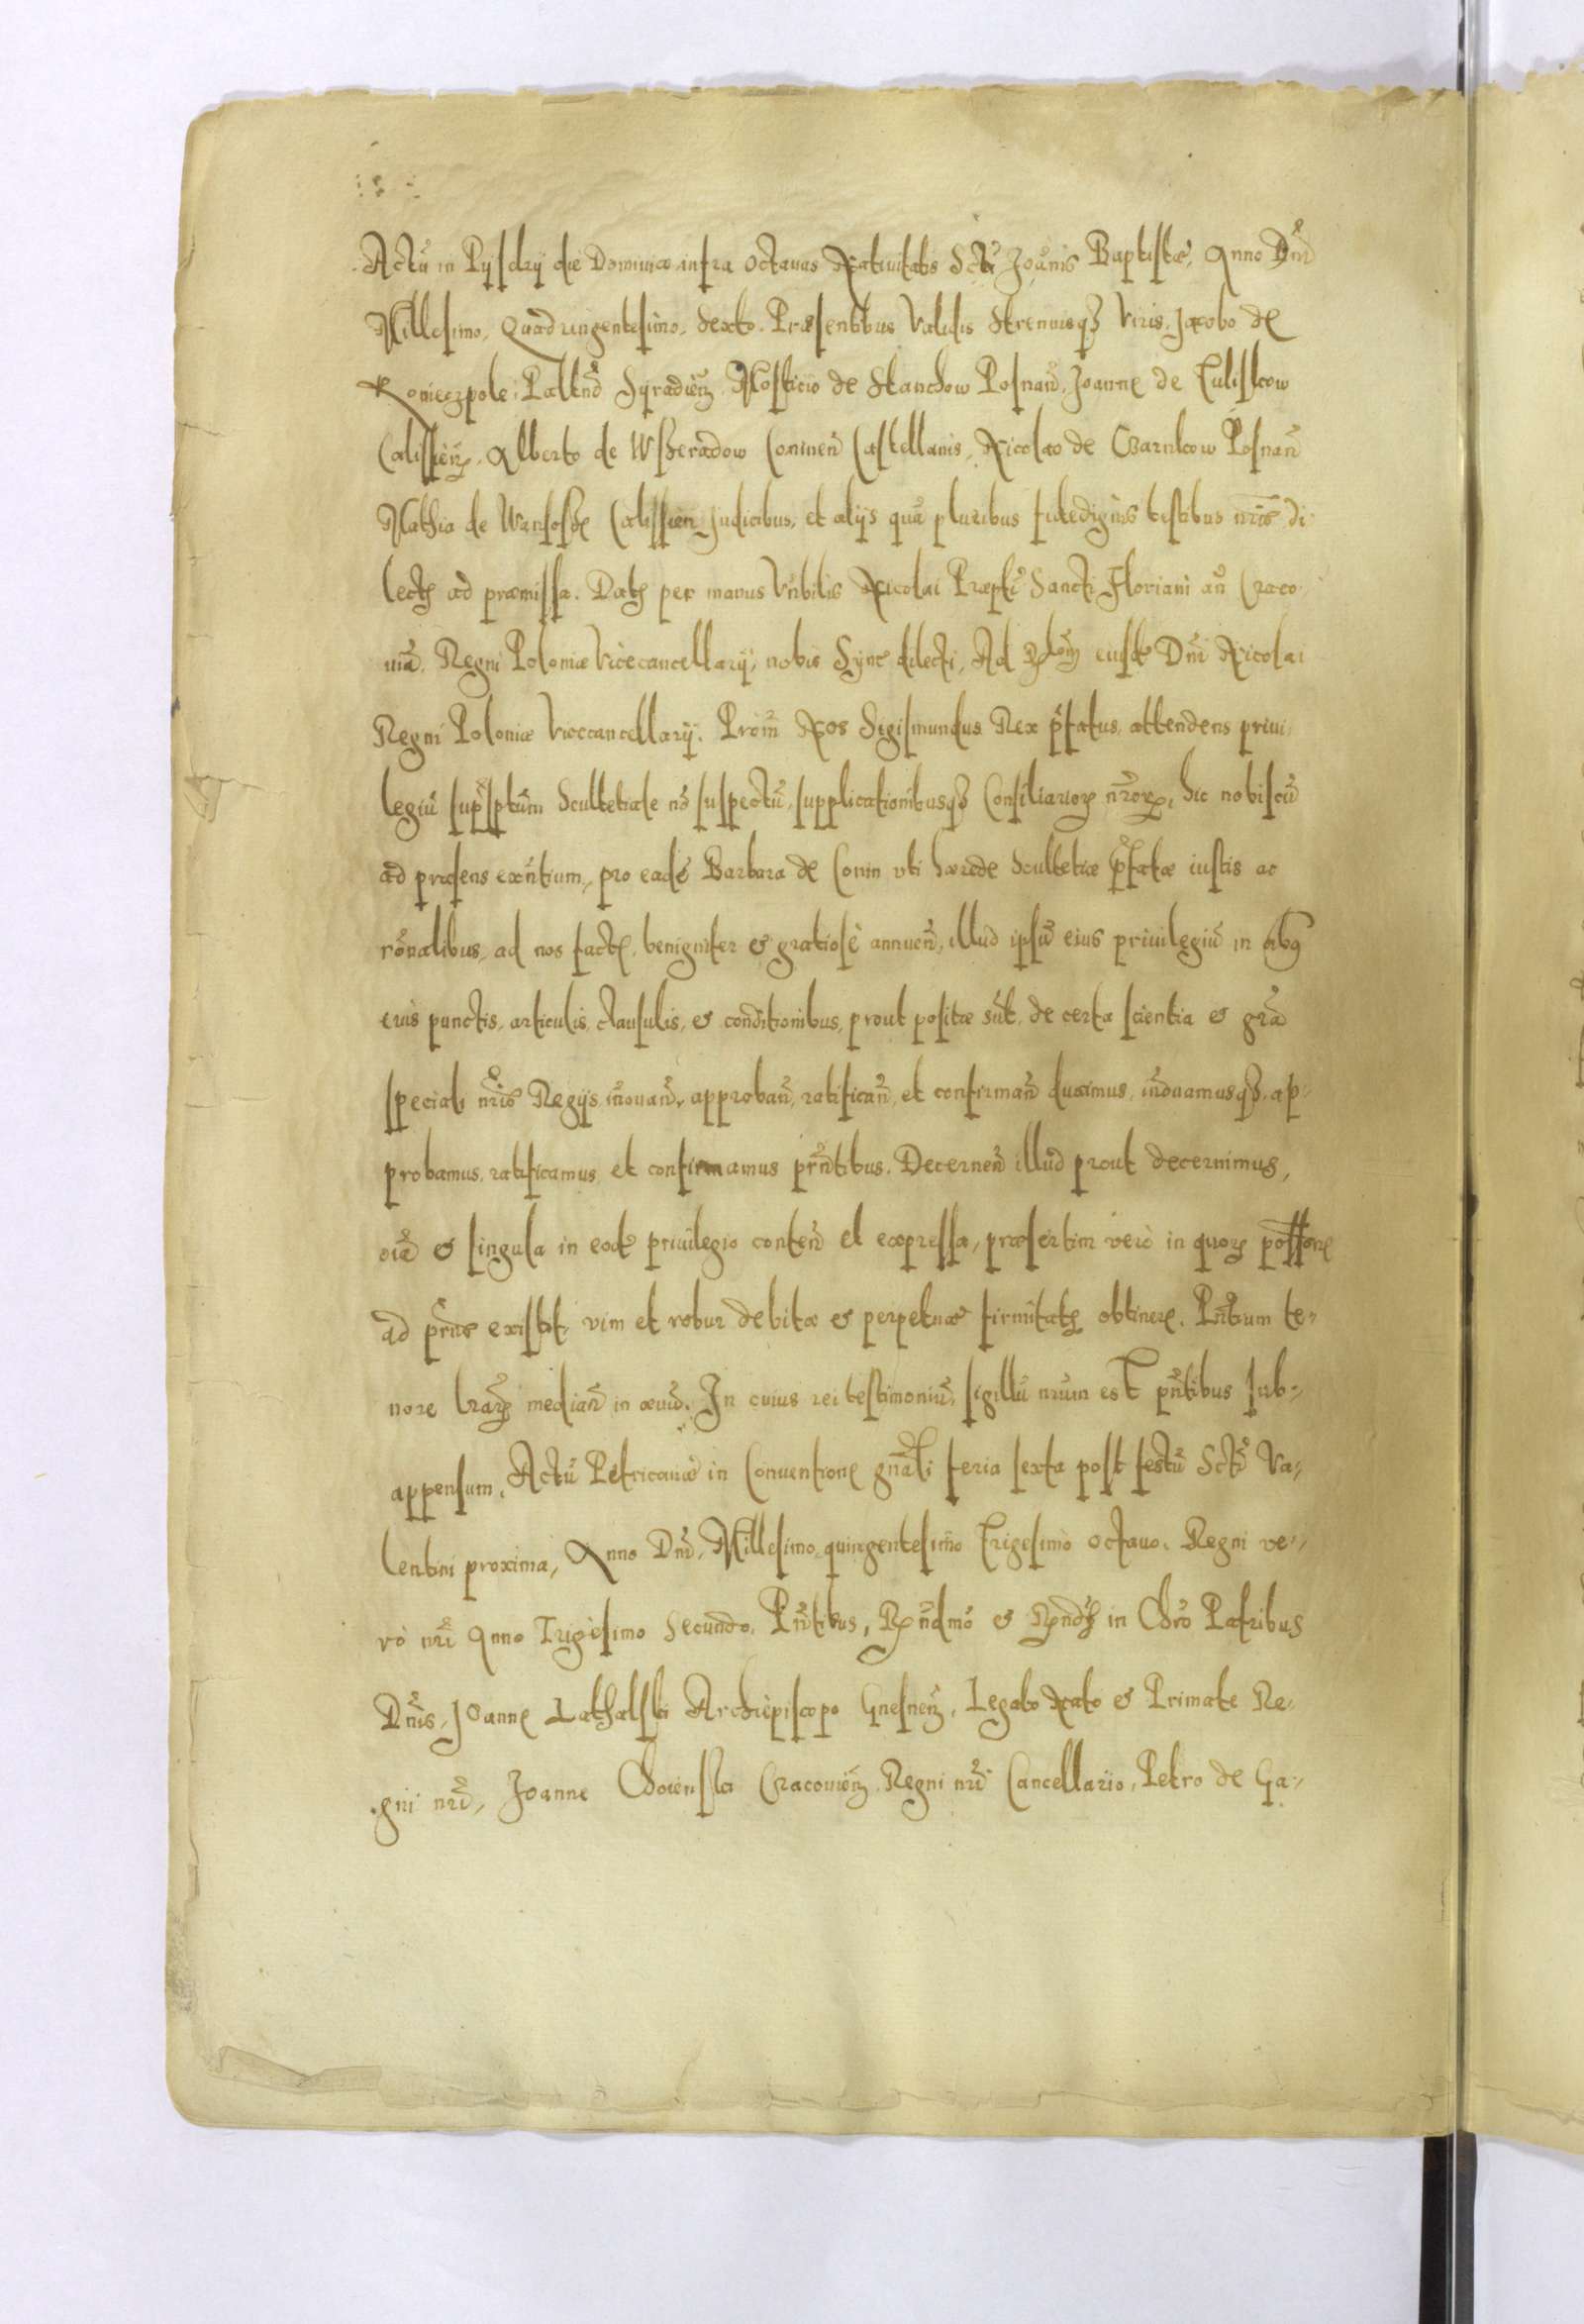 Actũ in Pyſdry die Dominica infra octauas Natiuitatis Sctĩ Joãnis Baptistæ, Anno Dnĩ
Milleſimo, Quadringenteſimo, Sexto. Præſentibus Validis Strenuisqȝ Viris, Jacobo de
Konieczpole, Palatñ Syradieñ, Moſticio de Stanchow Poſnañ, Joanne de Tuliſkow
Caliſſieñ, Alberto de Wſzeradow Coninen̄ Caſtellanis, Nicolao de Czarnkow Poſnañ
Mathia de Wanſoſze Caliſſien̄ Judicibus, et alijs quã pluribus fidedignis teſtibus nr̃is di-
lectis ad præmiſſa. Datũ per manus Vñbilis Nicolai Præpti Sancti Floriani añ Craco-
uiã, Regni Poloniæ Vicecancellarij, nobis Syncẽ dilecti, Ad Rlõm eiuſdẽ Dnĩ Nicolai
Regni Poloniæ Vicecancellarij. Nos Sigiſmundus Rex p̃fatus, attendens priui-
legiũ ſup̃ſptũm Scultetiale nõ ſuſpectũ, ſupplicationibusqȝ Conſiliarioꝝ nr̃oꝝ, hic nobiſcũ
ad præſens exñtium, pro eadẽ Barbara de Conin vti hærede Scultetiæ p̃fatæ iuſtis ac
rõnalibus, ad nos factis, benigniter & gratioſè annuen̄, illud ipſũ eius priuilegiũ in oĩbꝯ
eius punctis, articulis, clauſulis, & conditionibus, prout poſitæ sũt, de certa ſcientia & gr̃a
ſpeciali nr̃is Regijs, iñouañ, approbañ, ratificañ, et confirmañ duximus, iñouamusqȝ, ap-
probamus, ratificamus, et confirmamus pr̃ntibus. Decernen̄ illud prout decernimus,
oĩa & ſingula in eodẽ priuilegio conten̄ et expreſſa, præſertim verò in quoꝝ poſſione
ad pr̃ns exiſtit, vim et robur debitæ & perpetuæ firmitatis obtinere. Pr̃ntium te-
nore lr̃arꝝ mediañ in æuũ. In cuius rei teſtimoniũ, ſigillũ nrũm est pñtibus ſub-
appenſum. Actũ Petricouiæ in Conuentione gñali feria ſexta poſt feſtũ Sctĩ Va-
lentini proxima, Anno Dnĩ, Milleſimo quingenteſimo Trigeſimo octauo. Regni ve-
rò nr̃i Anno Trigeſimo Secundo, Pñtibus, Rñdmo & Rñdis in Chrõ Patribus
Dñis, Joanne Lathalſki Archiepiſcopo Gneſneñ, Legato Nato & Primate Re-
gni nr̃i, Joanne Choienſki Cracouieñ, Regni nr̃i Cancellario, Petro de Ga-